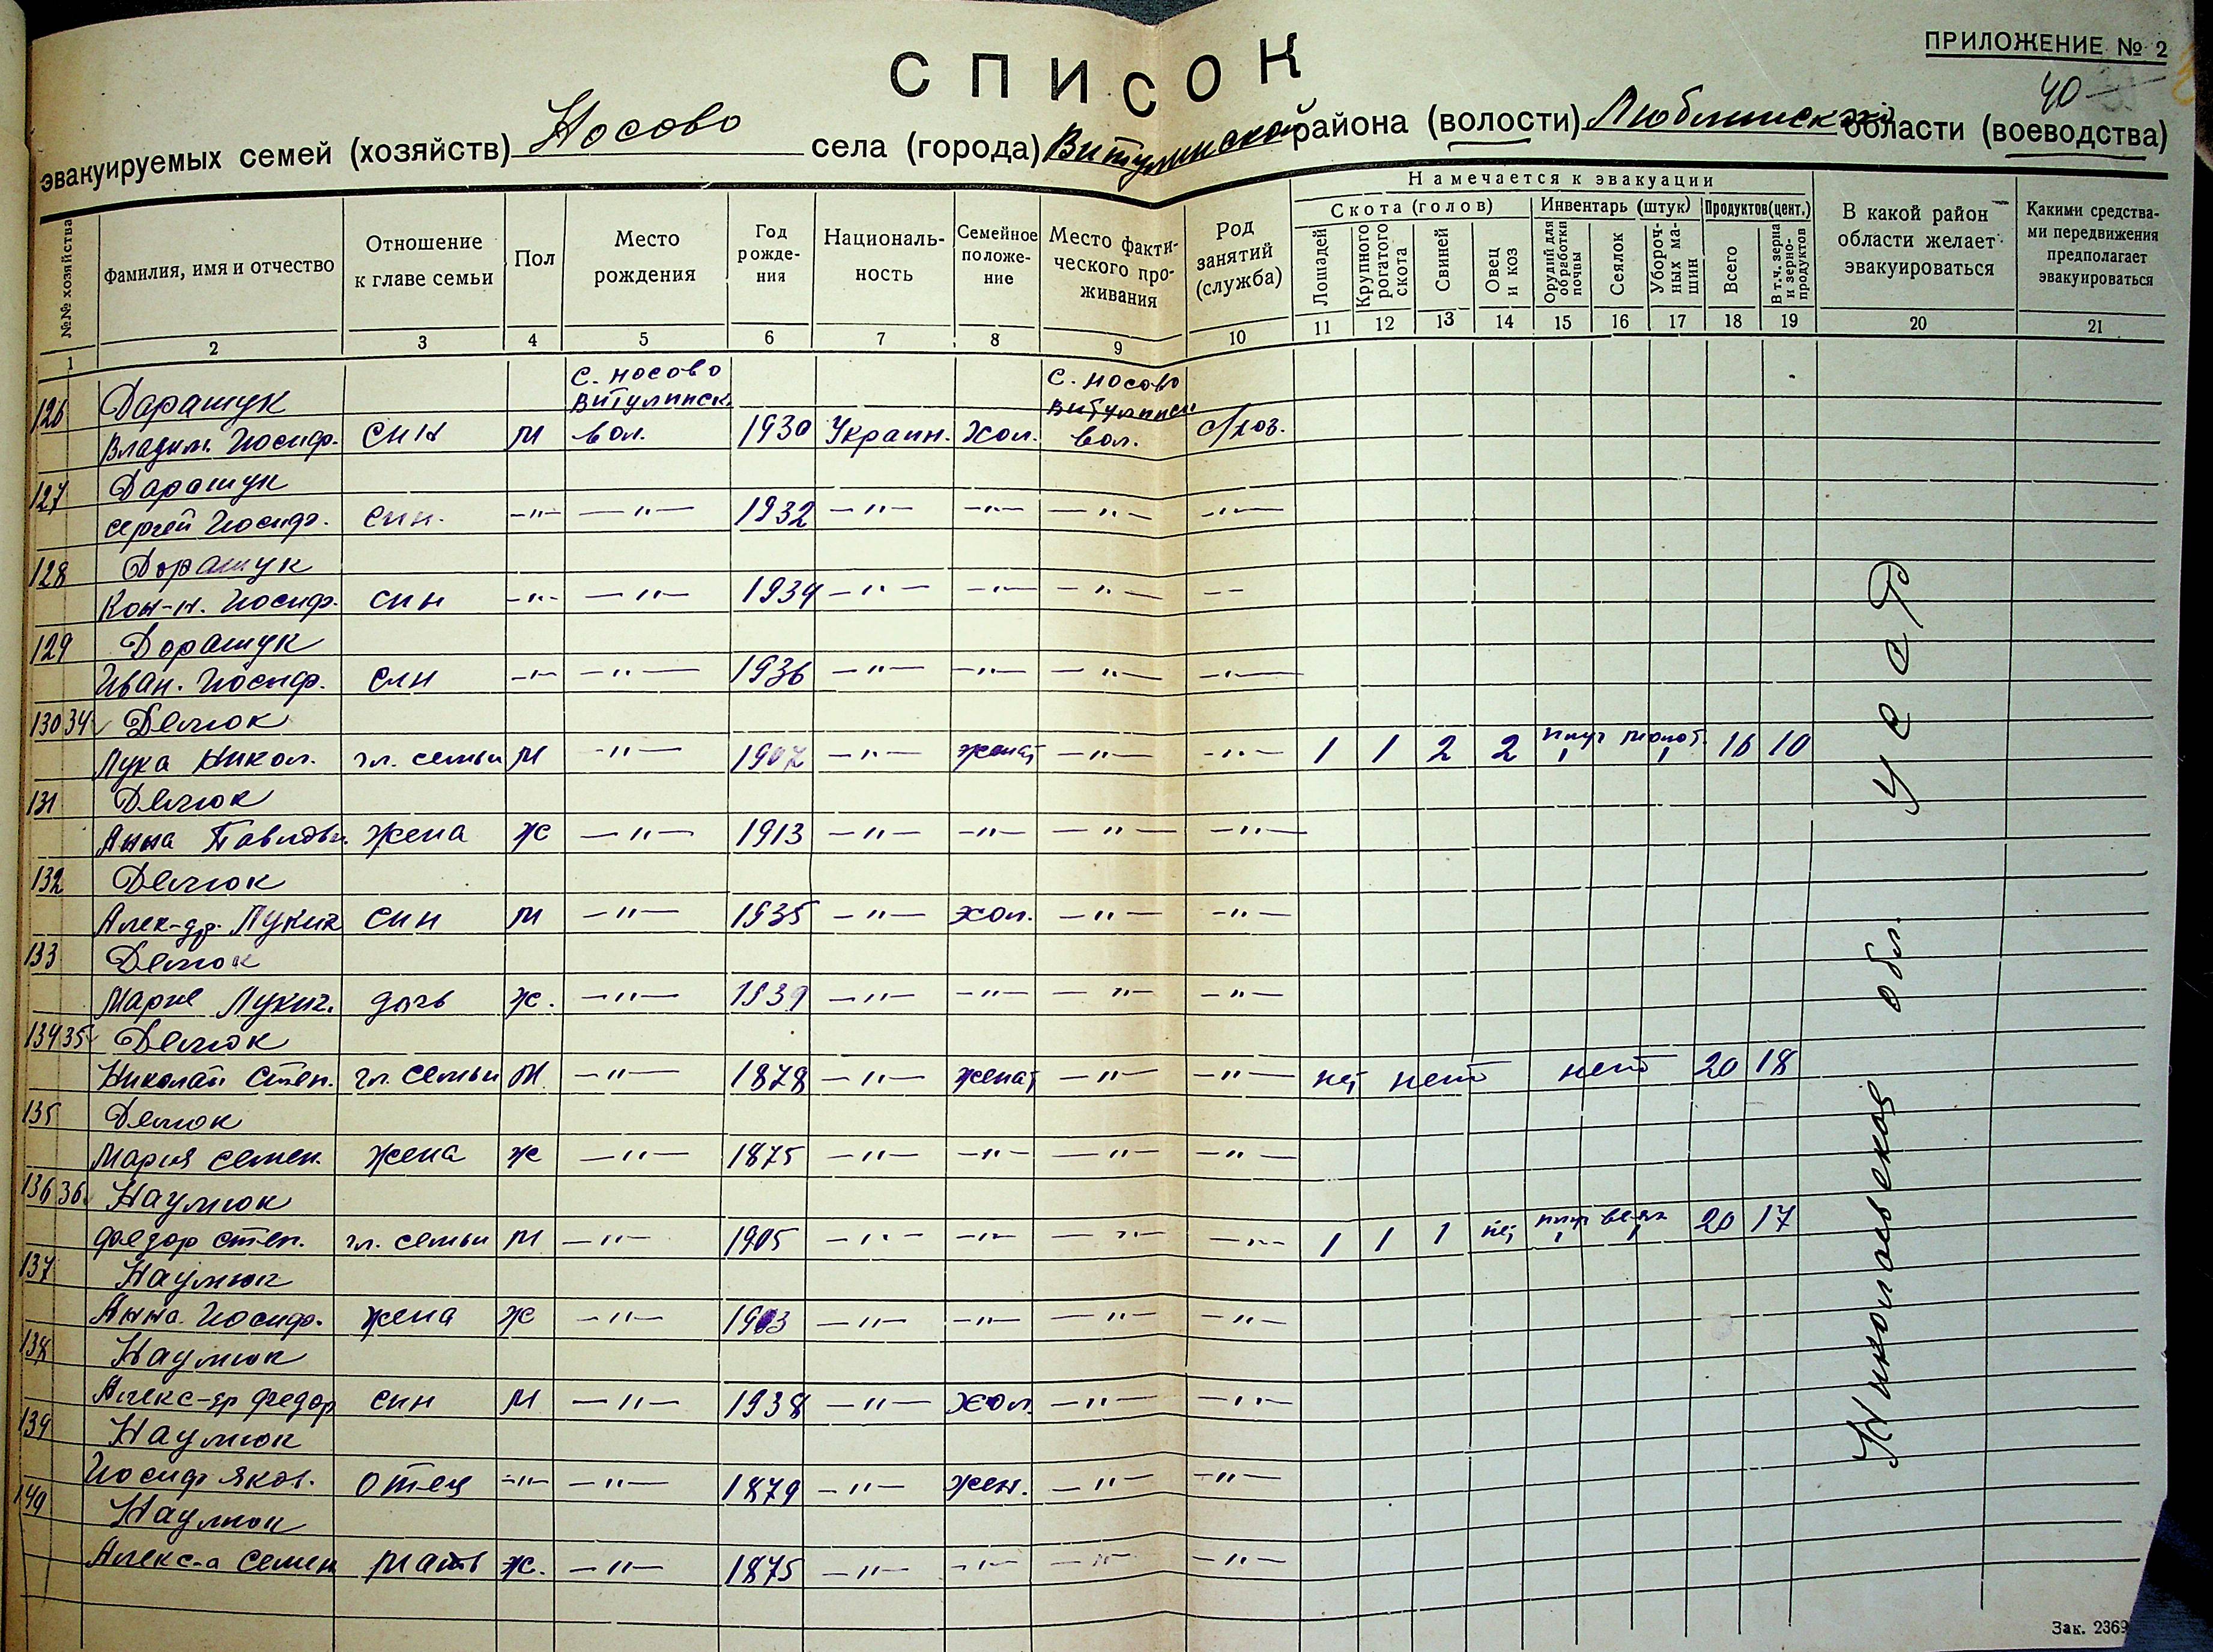 ПРИЛОЖЕНИЕ № 2
40
СПИСОК
эвакуируемых семей (хозяйств) Носово села (города) Витулинской района (волости) Люблинской области (воеводства)
№№ хозяйства
Фамилия, имя и отчество
Отношение к главе семьи
Пол
Место рождения
Год рожде-ния
Националь-ность
Семейное положе-ние
Место факти-ческого про-живания
Род занятий (служба)
Намечается к эвакуации
Скота (голов)
Инвентарь (штук)
Продуктов (цент.)
Лошадей
Крупного рогатого скота
Свиней
Овец и коз
Орудий для обработки почвы
Сеялок
Убороч-ных ма-шин
Всего
В т. ч. зерна и зерно-продуктов
В какой район области желает эвакуироваться
Какими средства-ми передвижения предполагает эвакуироваться
1 2 3 4 5 6 7 8 9 10 11 12 13 14 15 16 17 18 19 20 21
с. Носово с. Носово
126 Дарашук Витулинск. Витулинск
Владим. Иосиф. син М вол. 1930 Украин. Хол. вол. с/хоз.
127 Дарашук
Сергей Иосиф. син. —"— —"— 1932 —"— —"— —"— —"—
128 Дорашук
Кон-н. Иосиф. син —"— —"— 1934 —"— —"— —"— ——
129 Дорашук
Иван. Иосиф. син —"— —"— 1936 —"— —"— —"— —"—
130 34 Делюк
Лука Никол. гл. семьи М —"— 1907 —"— женат —"— —"— 1 1 2 2 плуг 1 молот. 1 16 10
131 Делюк
Анна Павловн. жена ж —"— 1913 —"— —"— —"— —"—
132 Делюк
Алек-др. Лукич син М —"— 1935 —"— хол. —"— —"—
133 Делюк
Мария Лукич. дочь ж. —"— 1939 —"— —"— —"— —"—
134 35 Делюк
Николай Степ. гл. семьи М. —"— 1878 —"— женат —"— —"— нет нет нет 20 18
135 Делюк
Мария Семен. жена ж —"— 1875 —"— —"— —"— —"—
136 36 Наумюк
Федор Степ. гл. семьи М —"— 1905 —"— —"— —"— —"— 1 1 1 нет плуг 1 веялк 1 20 17
137 Наумюк
Анна Иосиф. жена ж —"— 1903 —"— —"— —"— —"—
138 Наумюк
Алекс-др Федор син М —"— 1938 —"— Хол. —"— —"—
139 Наумюк
Иосиф Яков. отец —"— —"— 1879 —"— жен. —"— —"—
140 Наумюк
Алекс-а Семен мать ж. —"— 1875 —"— —"— —"— —"—
Николаевская обл. УССР
Зак. 2369